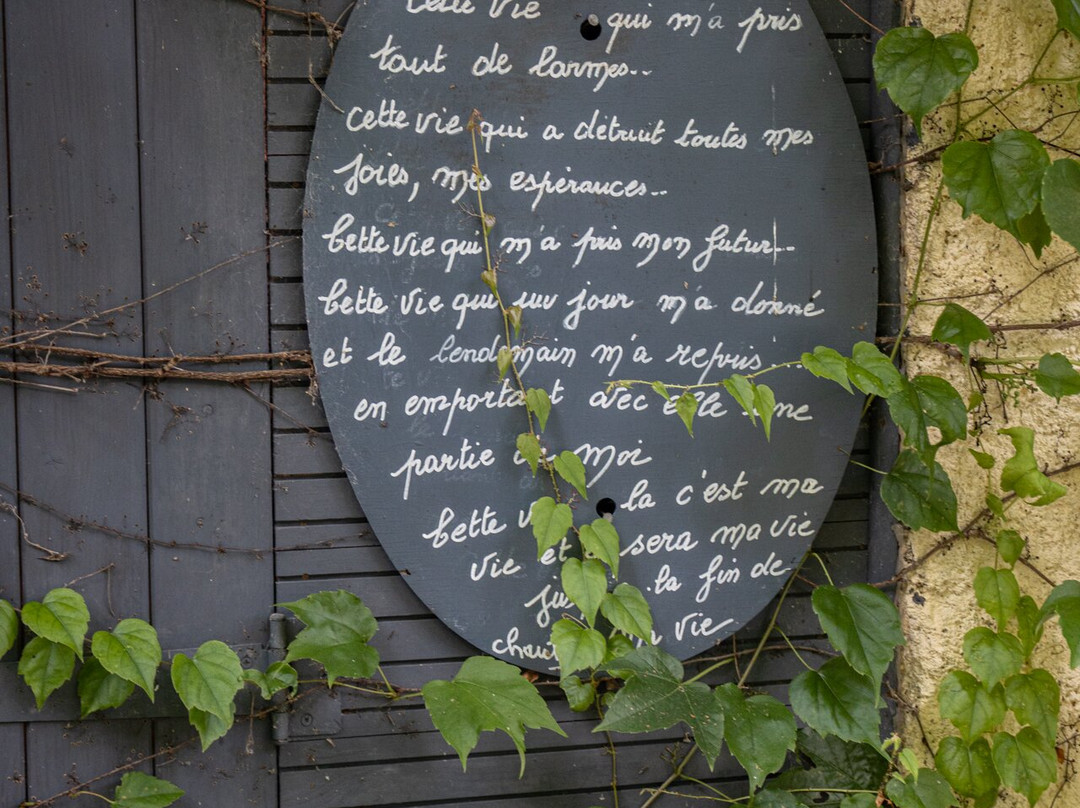 Cette vie qui m'a pris
tout de larmes..
cette vie qui a détruit toutes mes
joies, mes espérances..
Cette vie qui m'a pris mon futur..
Cette vie qui un jour m'a donné
et le lendemain m'a repris
en emportant avec elle une
partie de moi
Cette là c'est ma
vie et sera ma vie
la fin de
vie